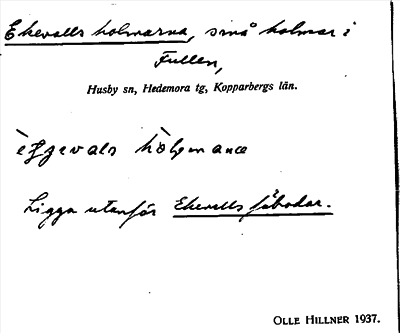 Ekevalls holmarna, små holmar i
Fullen,
Husby sn, Hedemora tg, Kopparbergs län.
Ligga utanför Ekevalls fäbodar.
OLLE HILLNER 1937.